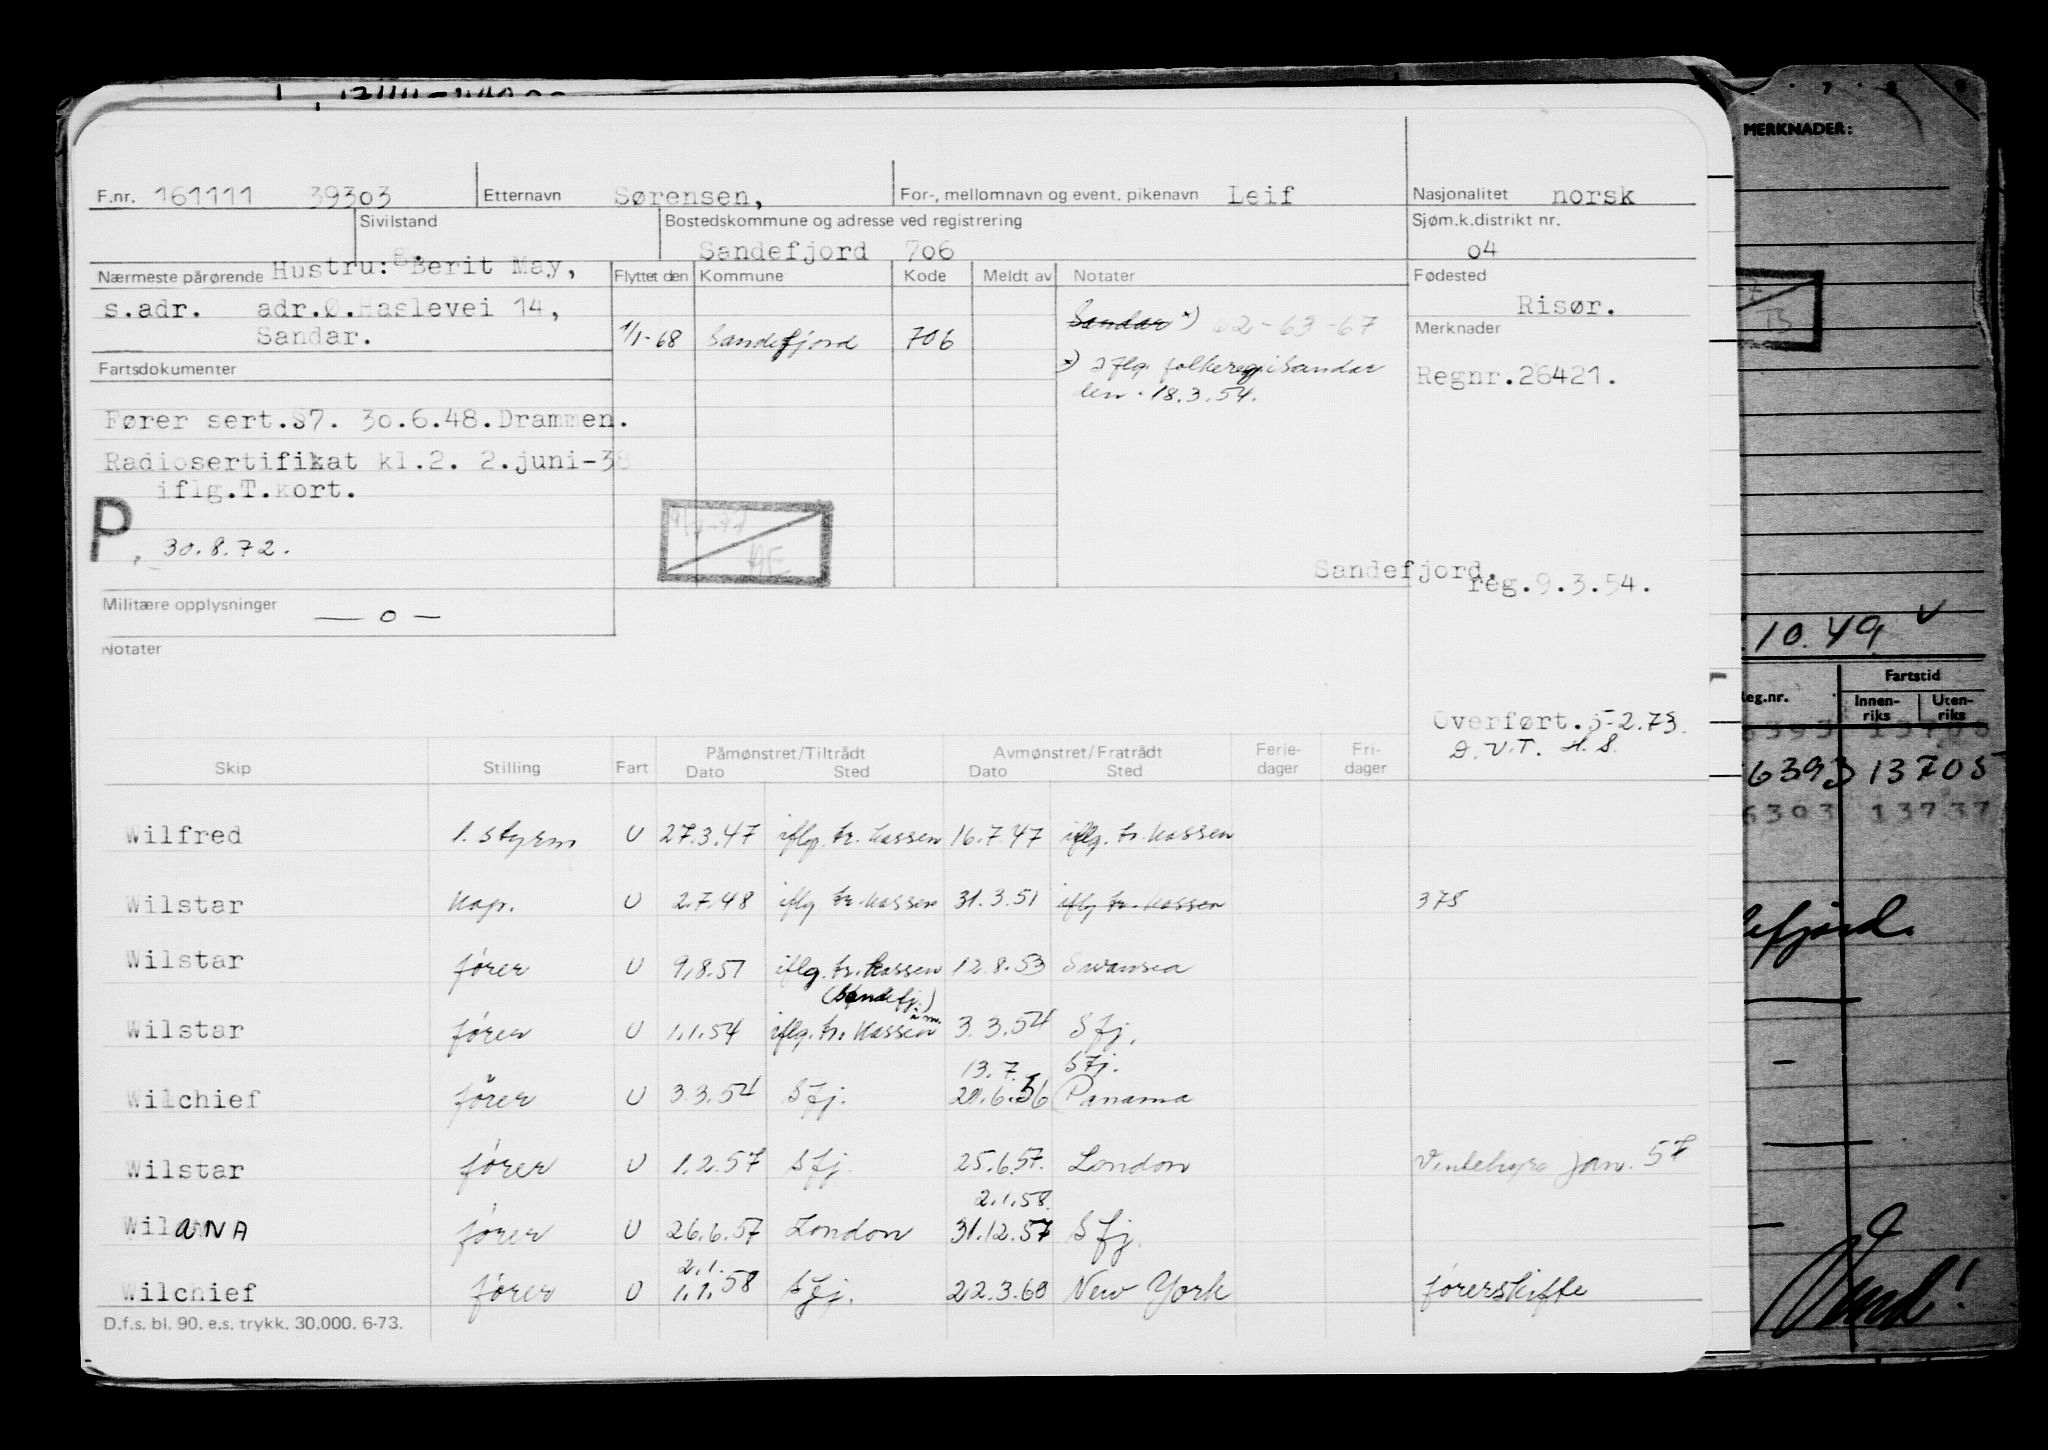 MERKNADER:
F.nr. 161111 39303 Etternavn Sørensen, For-, mellomnavn og event. pikenavn Leif Nasjonalitet norsk
Sivilstand Bostedskommune og adresse ved registrering Sjøm.k.distrikt nr.
g. Sandefjord 706 04
Nærmeste pårørende Hustru: Berit May, Flyttet den Kommune Kode Meldt av Notater Fødested
s.adr. adr.Ø.Haslevei 14, Risør.
Sandar. 1/1-68 Sandefjord 706 Sandar *) 62-63-67 Merknader
Fartsdokumenter *) iflg. folkereg i Sandar Regnr.26421.
den 18.3.54.
Fører sert.§7. 30.6.48.Drammen.
Radiosertifikat kl.2. 2.juni-38
iflg.T.kort.
P. 30.8.72.
Sandefjord,
reg.9.3.54.
Militære opplysninger — o —
10.49 v
Notater
Fartstid
Reg.nr. Innenriks Utenriks
Overført.5-2.73.
D.V.T. H.S.
Skip Stilling Fart Påmønstret/Tiltrådt Avmønstret/Fratrådt Ferie-dager Fri-dager
Dato Sted Dato Sted
6393 13705
6393 13737
Wilfred 1. styrm U 27.3.47 iflg. tr. kassen 16.7.47 iflg. tr. kassen
Wilstar Kap. U 2.7.48 iflg. tr. kassen 31.3.51 iflg tr. kassen 375
Wilstar fører U 9.8.51 iflg. tr. kassen 12.8.53 Swansea
(Sandefj.)
Wilstar fører U 1.1.54 iflg. tr. kassen 3.3.54 Sfj.
13.7. Sfj.
Wilchief fører U 3.3.54 Sfj. 20.6.56 Panama
Wilstar fører U 1.2.57 Sfj. 25.6.57. London Ventehyre jan. 57
2.1.58.
WilaNA fører U 26.6.57 London 31.12.57 Sfj.
2.1.
Wilchief fører U 1.1.58 Sfj. 22.3.60 New York førerskifte
D.f.s. bl. 90. e.s. trykk. 30.000. 6-73.